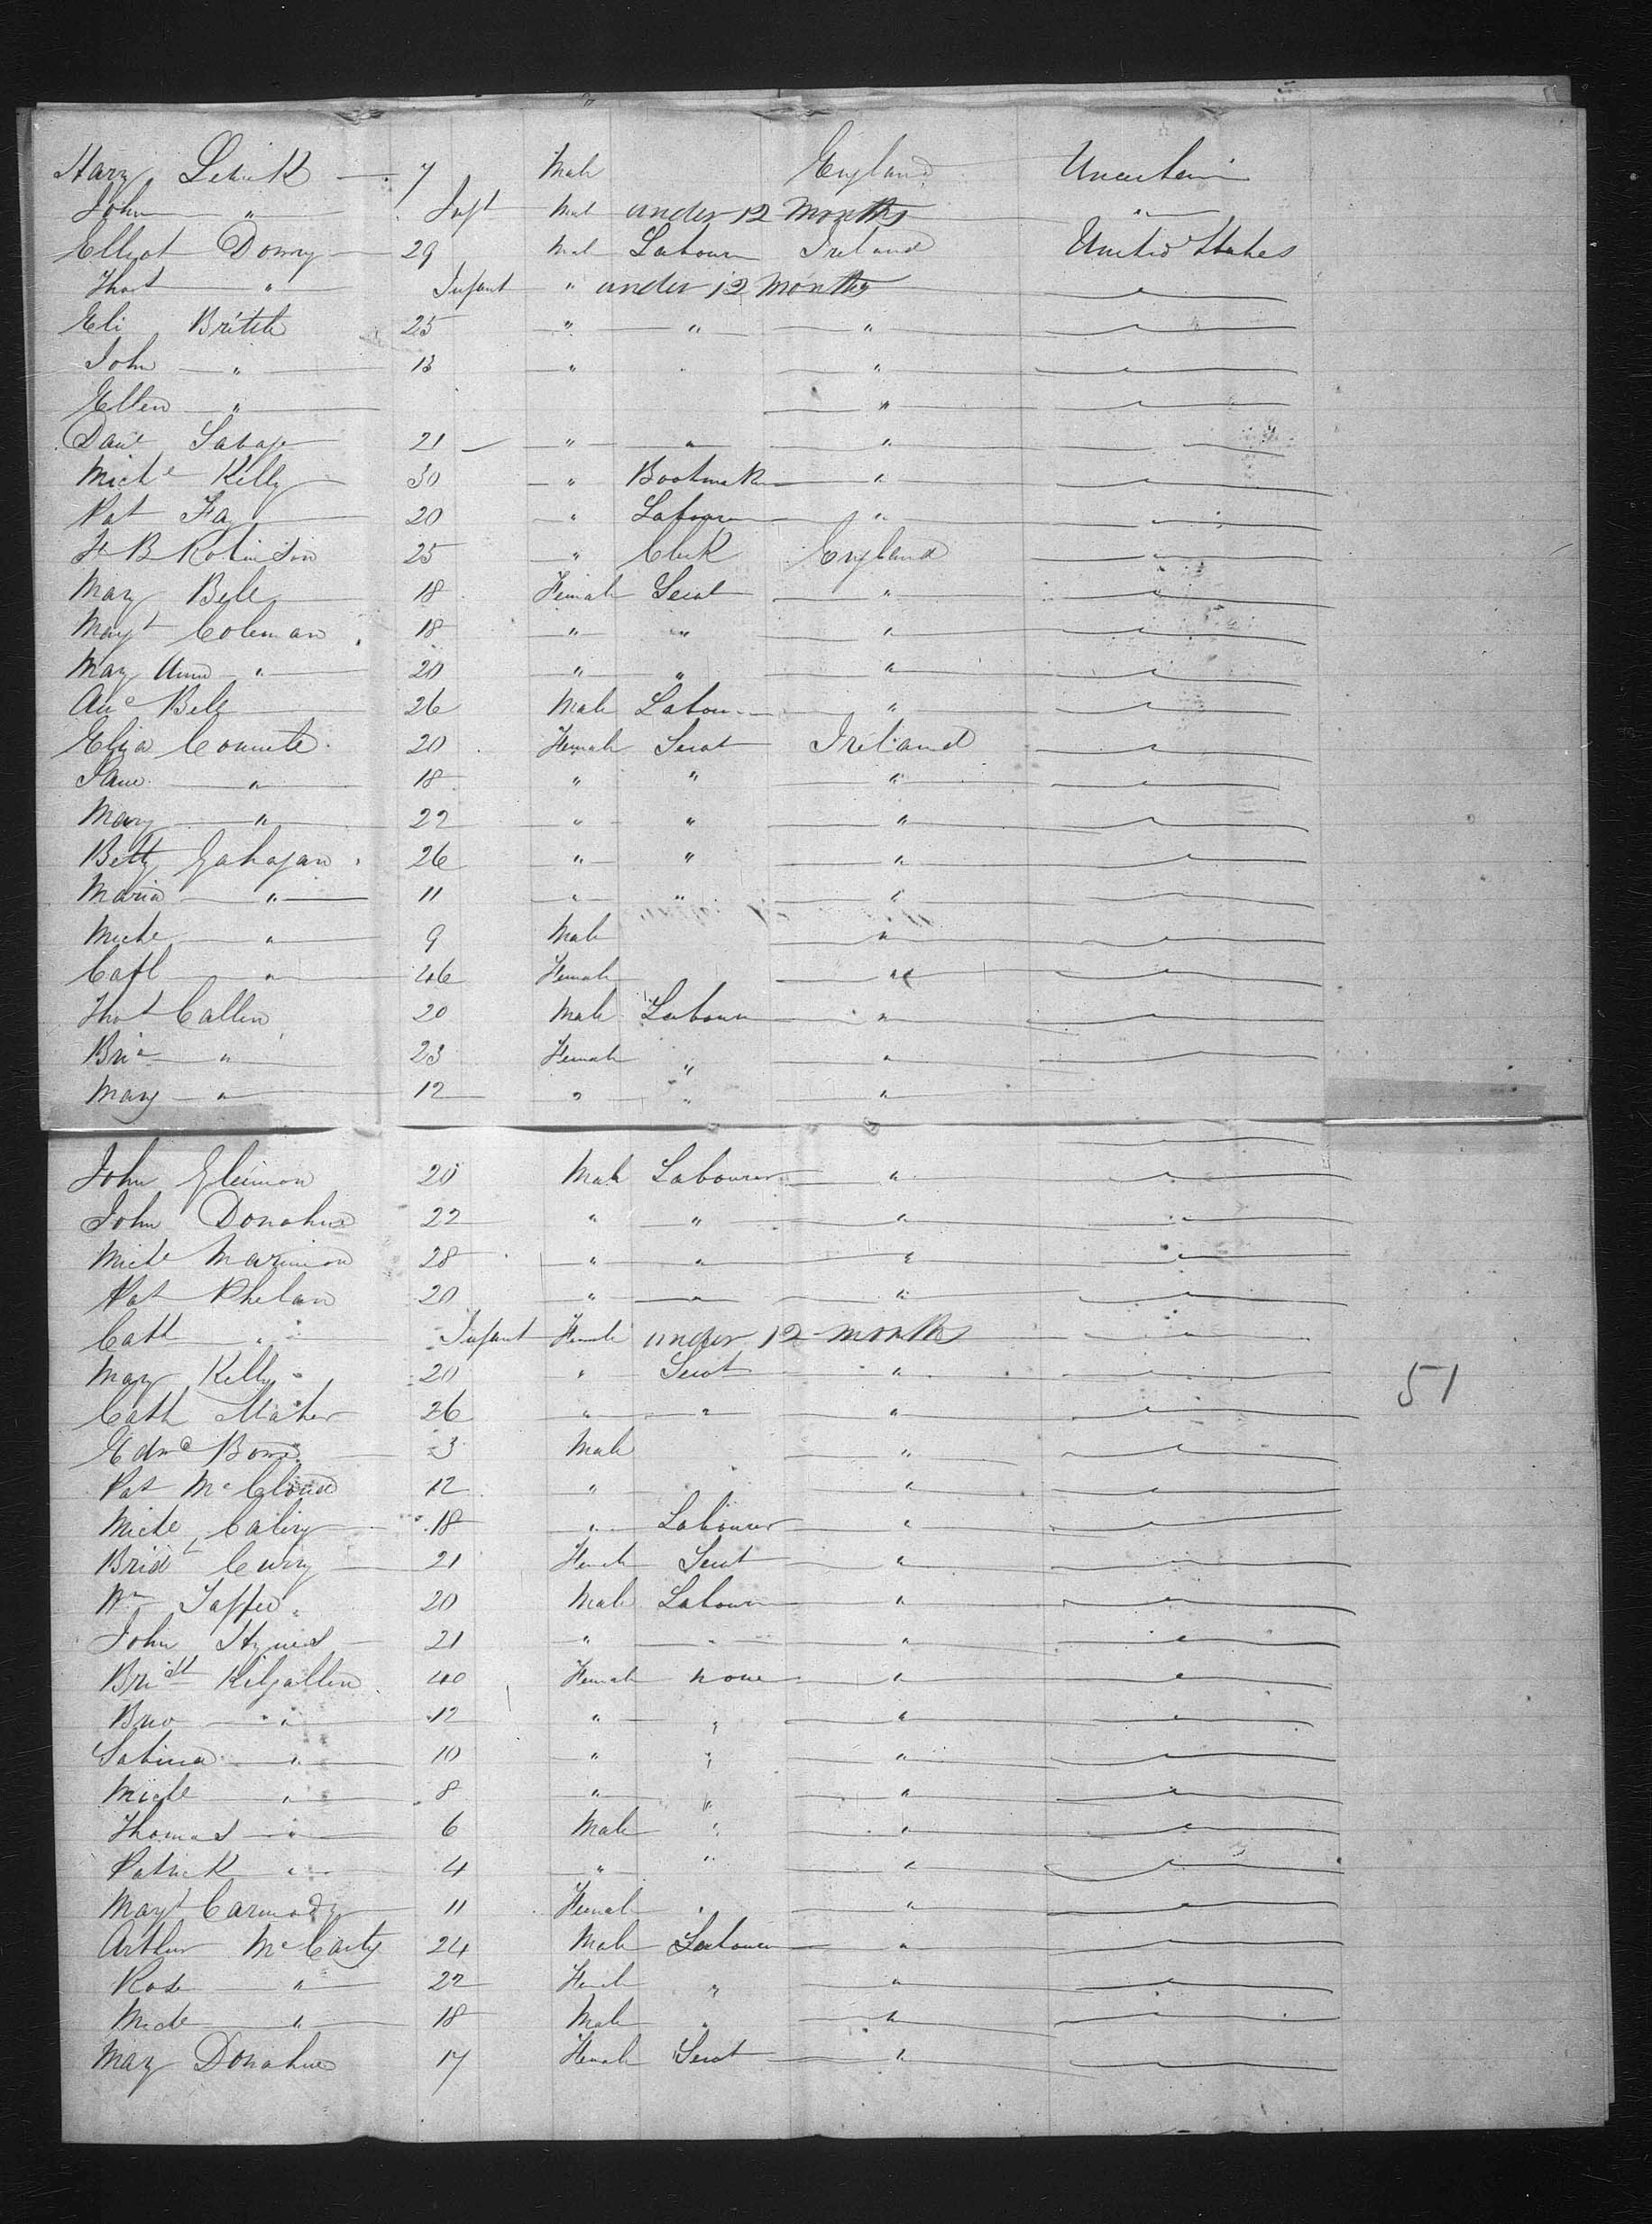 Harry 7 Male England Uncertain
John " Inft Male under 12 months "
Elliot 29 Male Labourer Ireland United States
Thos " Infant " under 12 months "
Eli 25 " " " "
John " 13 " " "
Ellen " " "
Danl Savage 21 " " " "
Michl Kelly 30 " Bootmaker " "
Pat Fay 20 " Labourer " "
H B Robinson 25 " Clerk England "
Mary Bell 18 Female Servt " "
Margt Coleman 18 " " " "
Mary Ann " 20 " " " "
Bell 26 Male Labour " "
Eliza 20 Female Servt Ireland "
Jane " 18 " " " "
Mary " 22 " " " "
Betty Gahagan 26 " " " "
Maria " 11 " " " "
Michl " 9 Male " "
Cath " 46 Female " "
Thos Callen 20 Male Labourer " "
" 23 Female " " "
Mary " 12 " " "
John 20 Male Labourer " "
John Donahue 22 " " " "
Michl 28 " " " "
Pat Phelan 20 " " " "
Cath " Infant Female under 12 months "
Mary Kelly 20 " Servt " "
51
Cath Maher 26 " " " "
Edmd 3 Male " "
Pat 12 " " "
Michl 18 " Labourer " "
Bridt Curry 21 Female Servt " "
Wm 20 Male Labourer " "
John Hynes 21 " " " "
Bridt Kilgallen 40 Female none " "
" 12 " " " "
Sabina " 10 " " " "
Michl " 8 " " " "
Thomas " 6 Male " " "
Patrick " 4 " " " "
Margt Carmody 11 Female " " "
Arthur McCarty 24 Male Labourer " "
Rose " 22 Female " " "
Michl " 18 Male " " "
Mary Donahue 17 Female Servt "